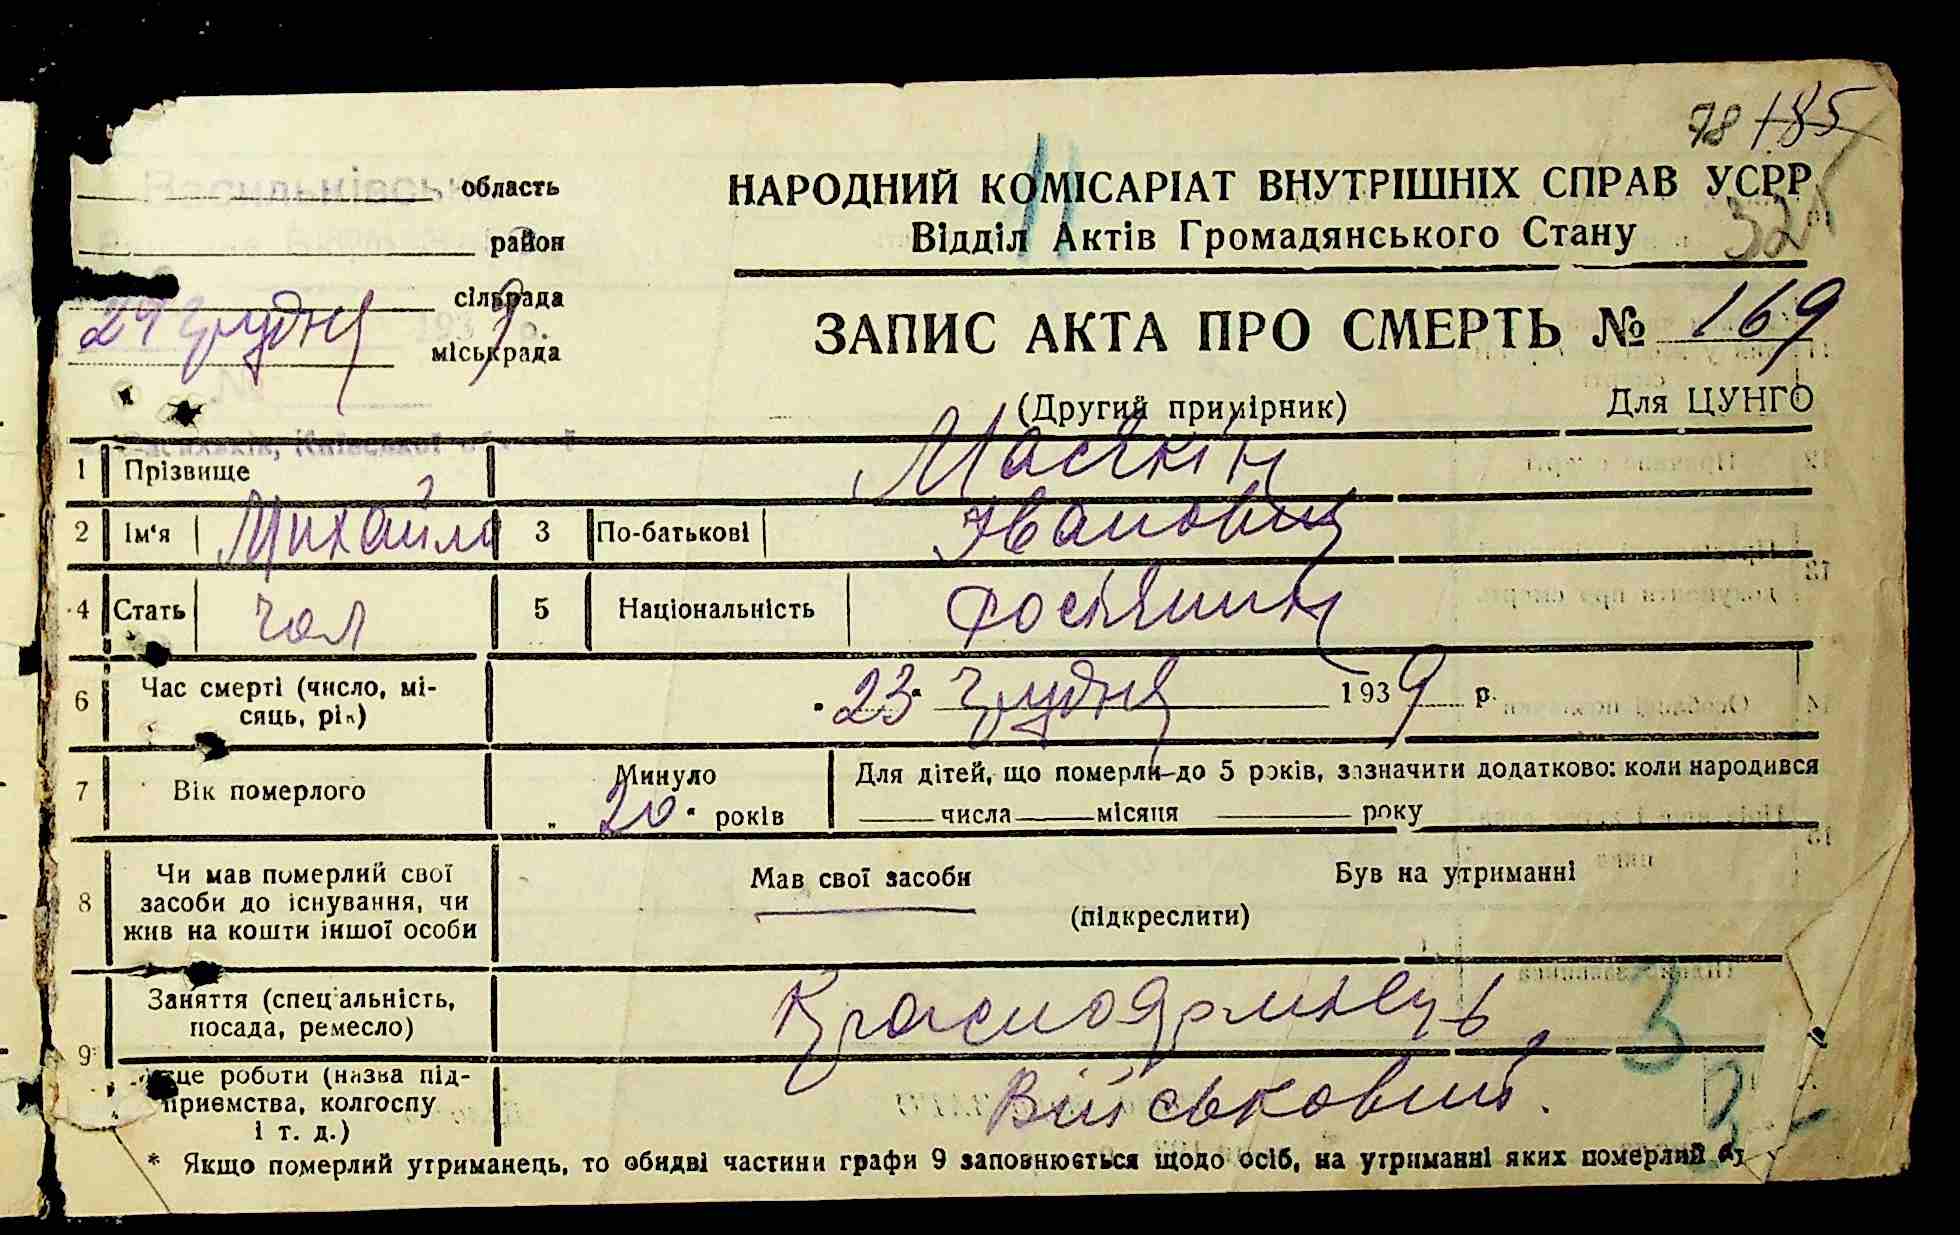 78 185
область
район
сільрада
24 грудня 1939 р.
міськрада
НАРОДНИЙ КОМІСАРІАТ ВНУТРІШНІХ СПРАВ УСРР
Відділ Актів Громадянського Стану
ЗАПИС АКТА ПРО СМЕРТЬ № 169
(Другий примірник) Для ЦУНГО
1 Прізвище Масякін
2 Ім‘я Михайло 3 По-батькові Іванович
4 Стать чол 5 Національність росіянин
6 Час смерті (число, мі-
сяць, рік) 23 грудня 1939 р.
7 Вік померлого Минуло 20 років
Для дітей, що померли до 5 років, зазначити додатково: коли народився
числа місяця року
8 Чи мав померлий свої
засоби до існування, чи
жив на кошти іншої особи
Мав свої засоби Був на утриманні
(підкреслити)
9 Заняття (спеціальність,
посада, ремесло) Красноармієць
це роботи (назва під-
приємства, колгоспу
і т. д.) Військовий.
3
* Якщо померлий утриманець, то обидві частини графи 9 заповнюється щодо осіб, на утриманні яких померлий